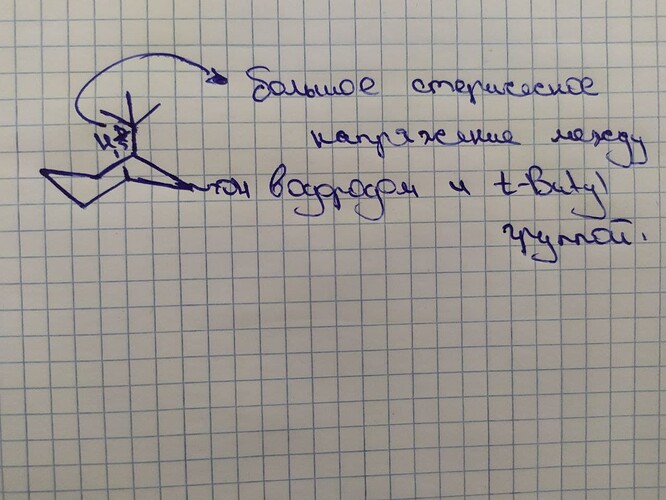 большое стерическое
напряжение между
H
OH водородом и t-Butyl
группой.